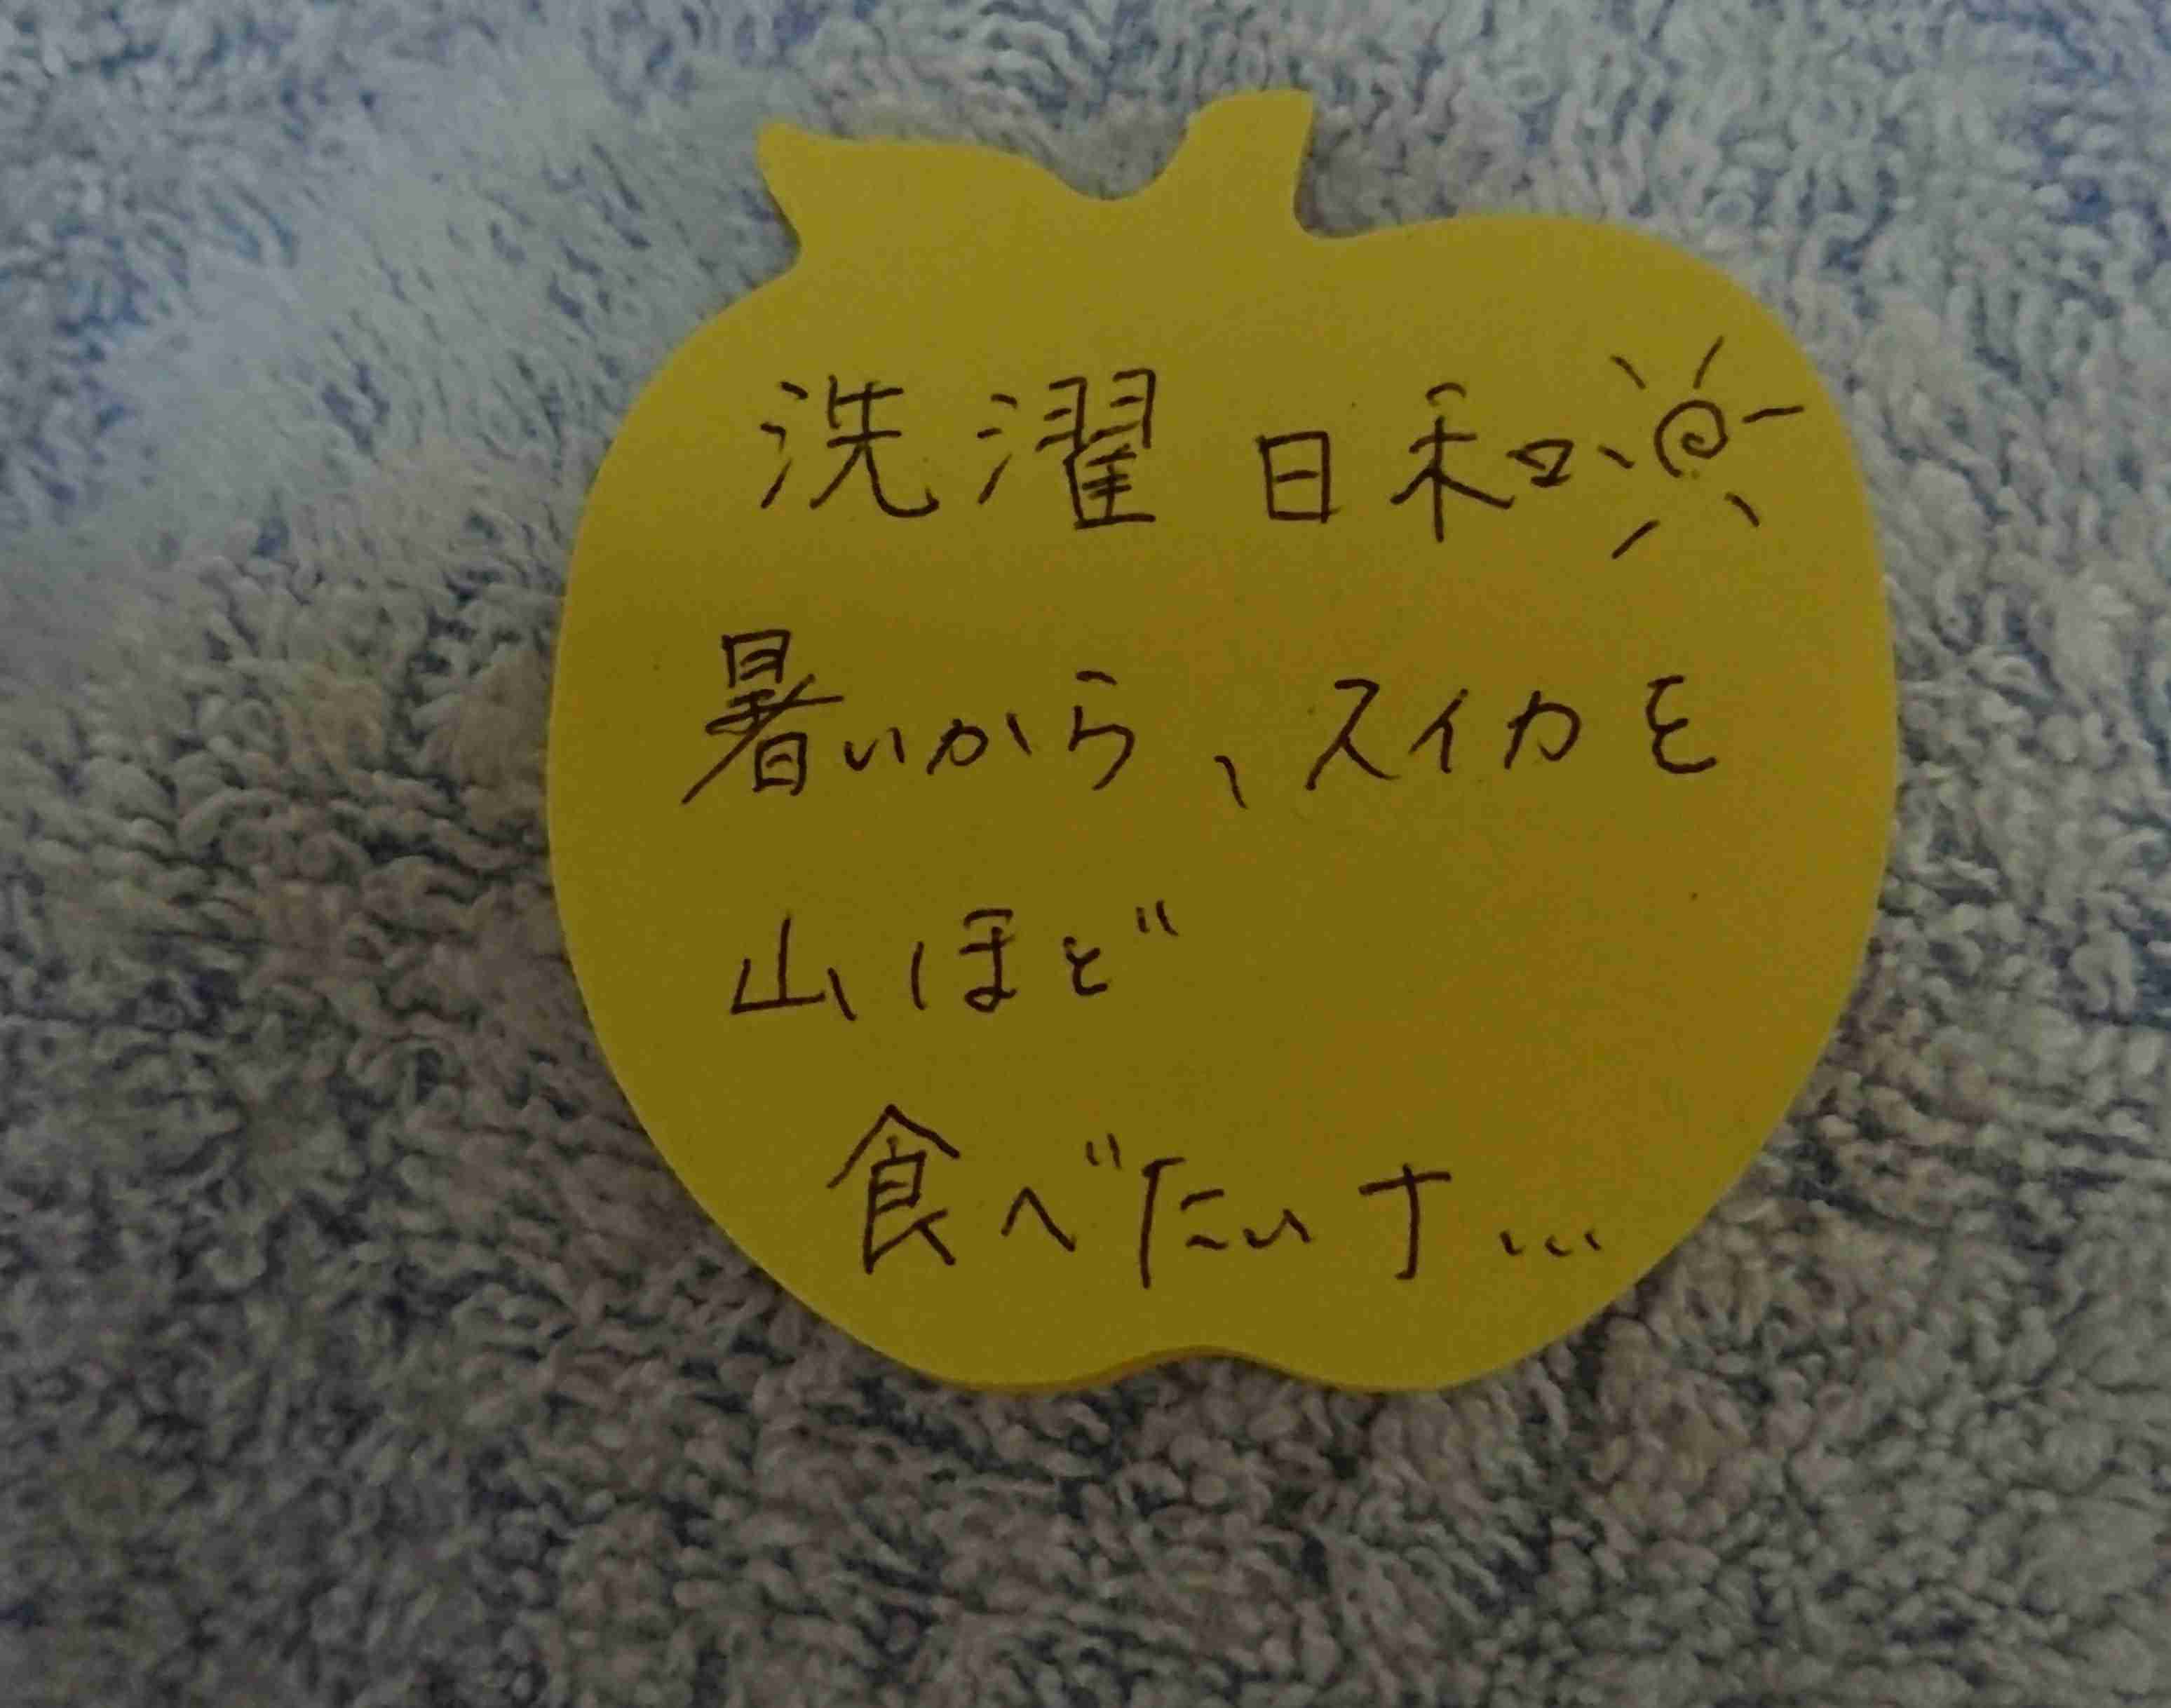 洗濯日和
暑いから、スイカを
山ほど
食べたいナ…